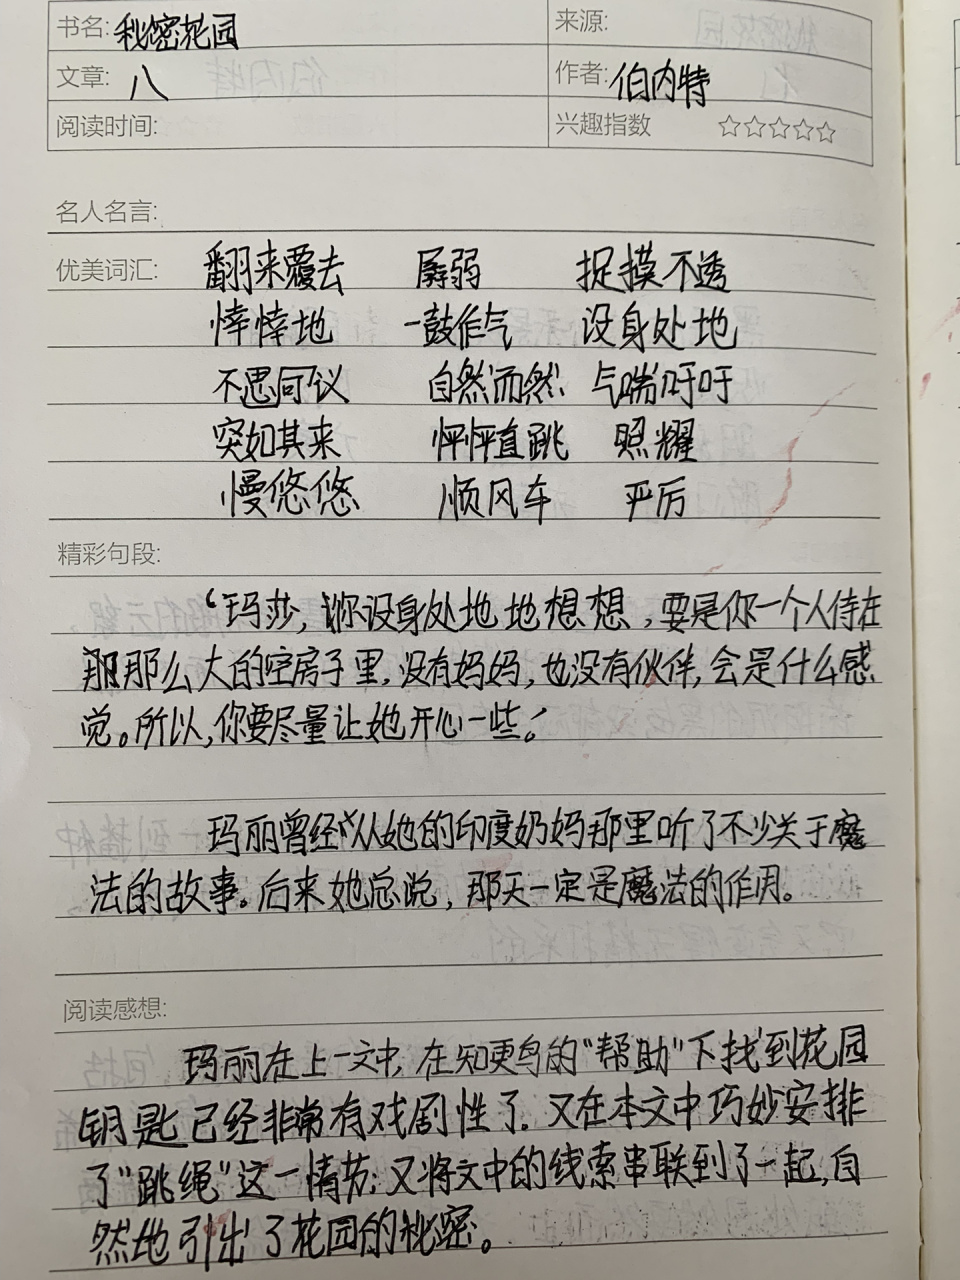 书名: 秘密花园 来源:
文章: 八 作者: 伯内特
阅读时间: 兴趣指数 ☆☆☆☆☆
名人名言:
优美词汇: 翻来覆去 孱弱 捉摸不透
悻悻地 一鼓作气 设身处地
不思可议 自然而然 气喘吁吁
突如其来 怦怦直跳 照耀
慢悠悠 顺风车 严厉
精彩句段:
“玛莎,你设身处地地想想,要是你一个人待在
那那么大的空房子里,没有妈妈,也没有伙伴,会是什么感
觉。所以,你要尽量让她开心一些!
玛丽曾经从她的印度奶妈那里听了不少关于魔
法的故事。后来她总说,那天一定是魔法的作用。
阅读感想:
玛丽在上一文中,在知更鸟的“帮助”下找到花园
钥匙已经非常有戏剧性了。又在本文中巧妙安排
了“跳绳”这一情节;又将文中的线索串联到了一起,自
然地引出了花园的秘密。